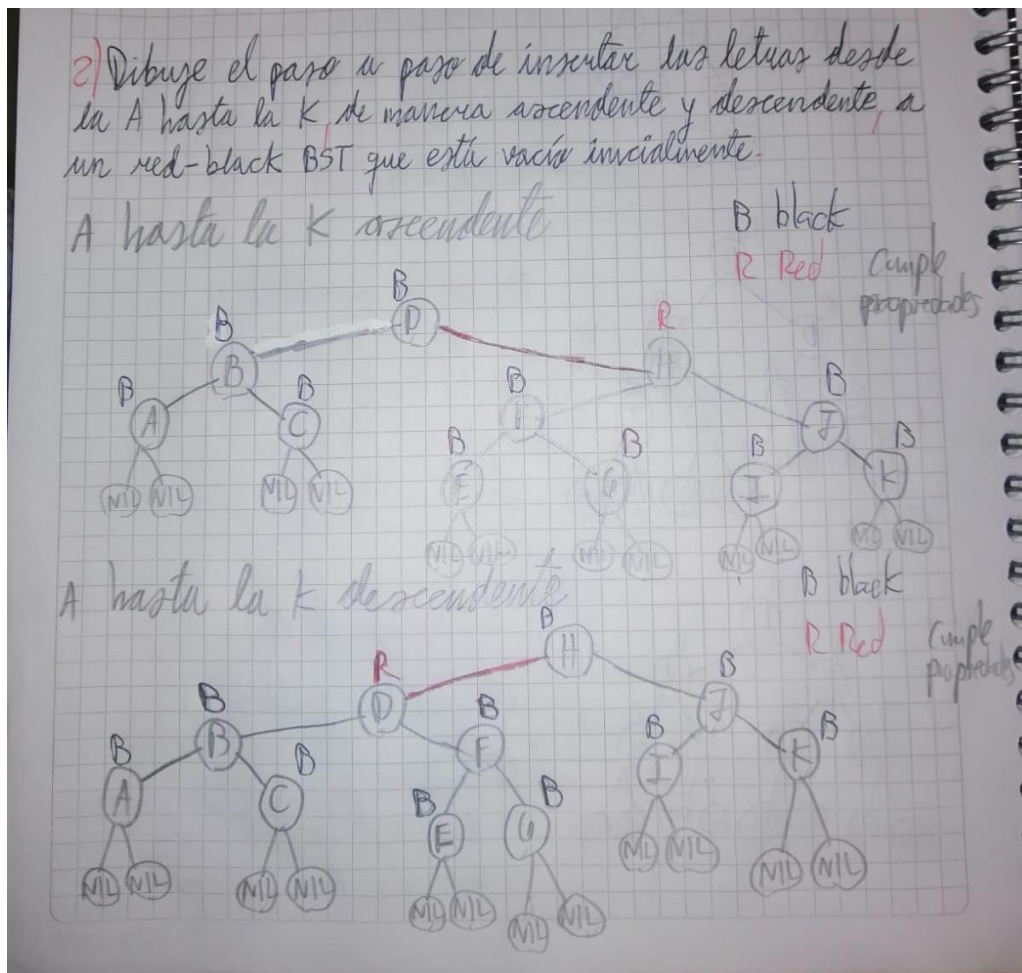 2) Dibuje el paso a paso de insertar las letras desde
la A hasta la K, de manera ascendente y descendente, a
un red-black BST que está vacío inicialmente.
A hasta la K ascendente
B black
R Red
Cumple
propiedades
B
D
B
B
R
H
B
A
B
C
B
F
B
J
B
E
B
G
B
I
B
K
NIL NIL NIL NIL NIL NIL NIL NIL NIL NIL NIL NIL
A hasta la K descendente
B black
R Red
Cumple
propiedades
B
H
R
D
B
J
B
B
B
F
B
I
B
K
B
A
B
C
B
E
B
G
NIL NIL NIL NIL NIL NIL NIL NIL NIL NIL NIL NIL